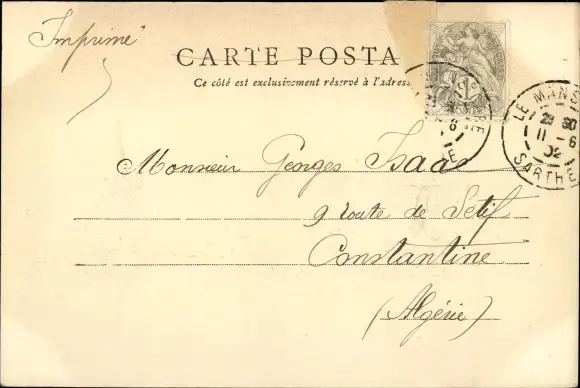 Imprimé
CARTE POSTA
Ce côté est exclusivement réservé à l'adress
LE MANS
23 30
11 - 6
02
SARTHE
Monsieur Georges Isaac
9 route de Sétif
Constantine
(Algérie)